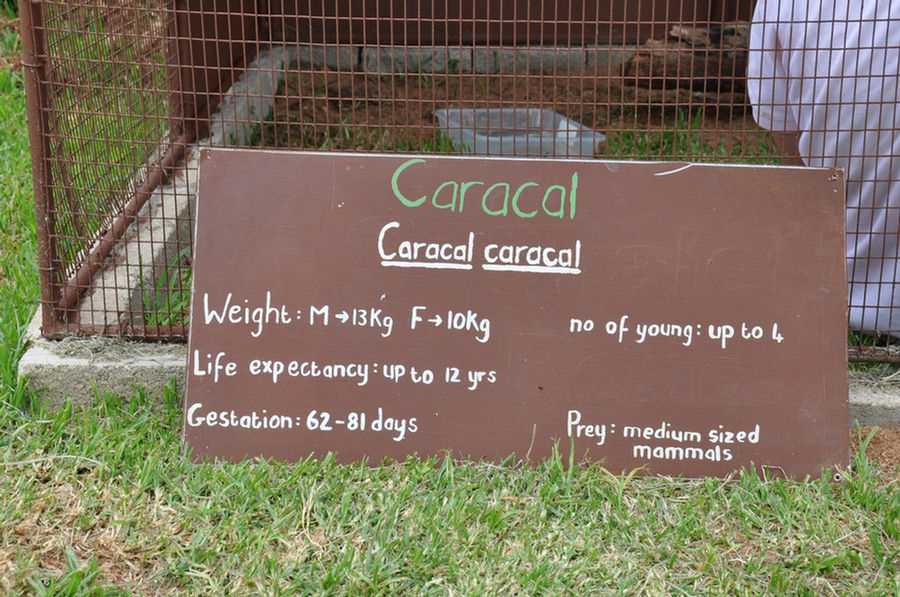 Caracal
Caracal caracal
Weight: M→13Kg F→10Kg
no of young: up to 4
Life expectancy: up to 12 yrs
Gestation: 62-81 days
Prey: medium sized
mammals